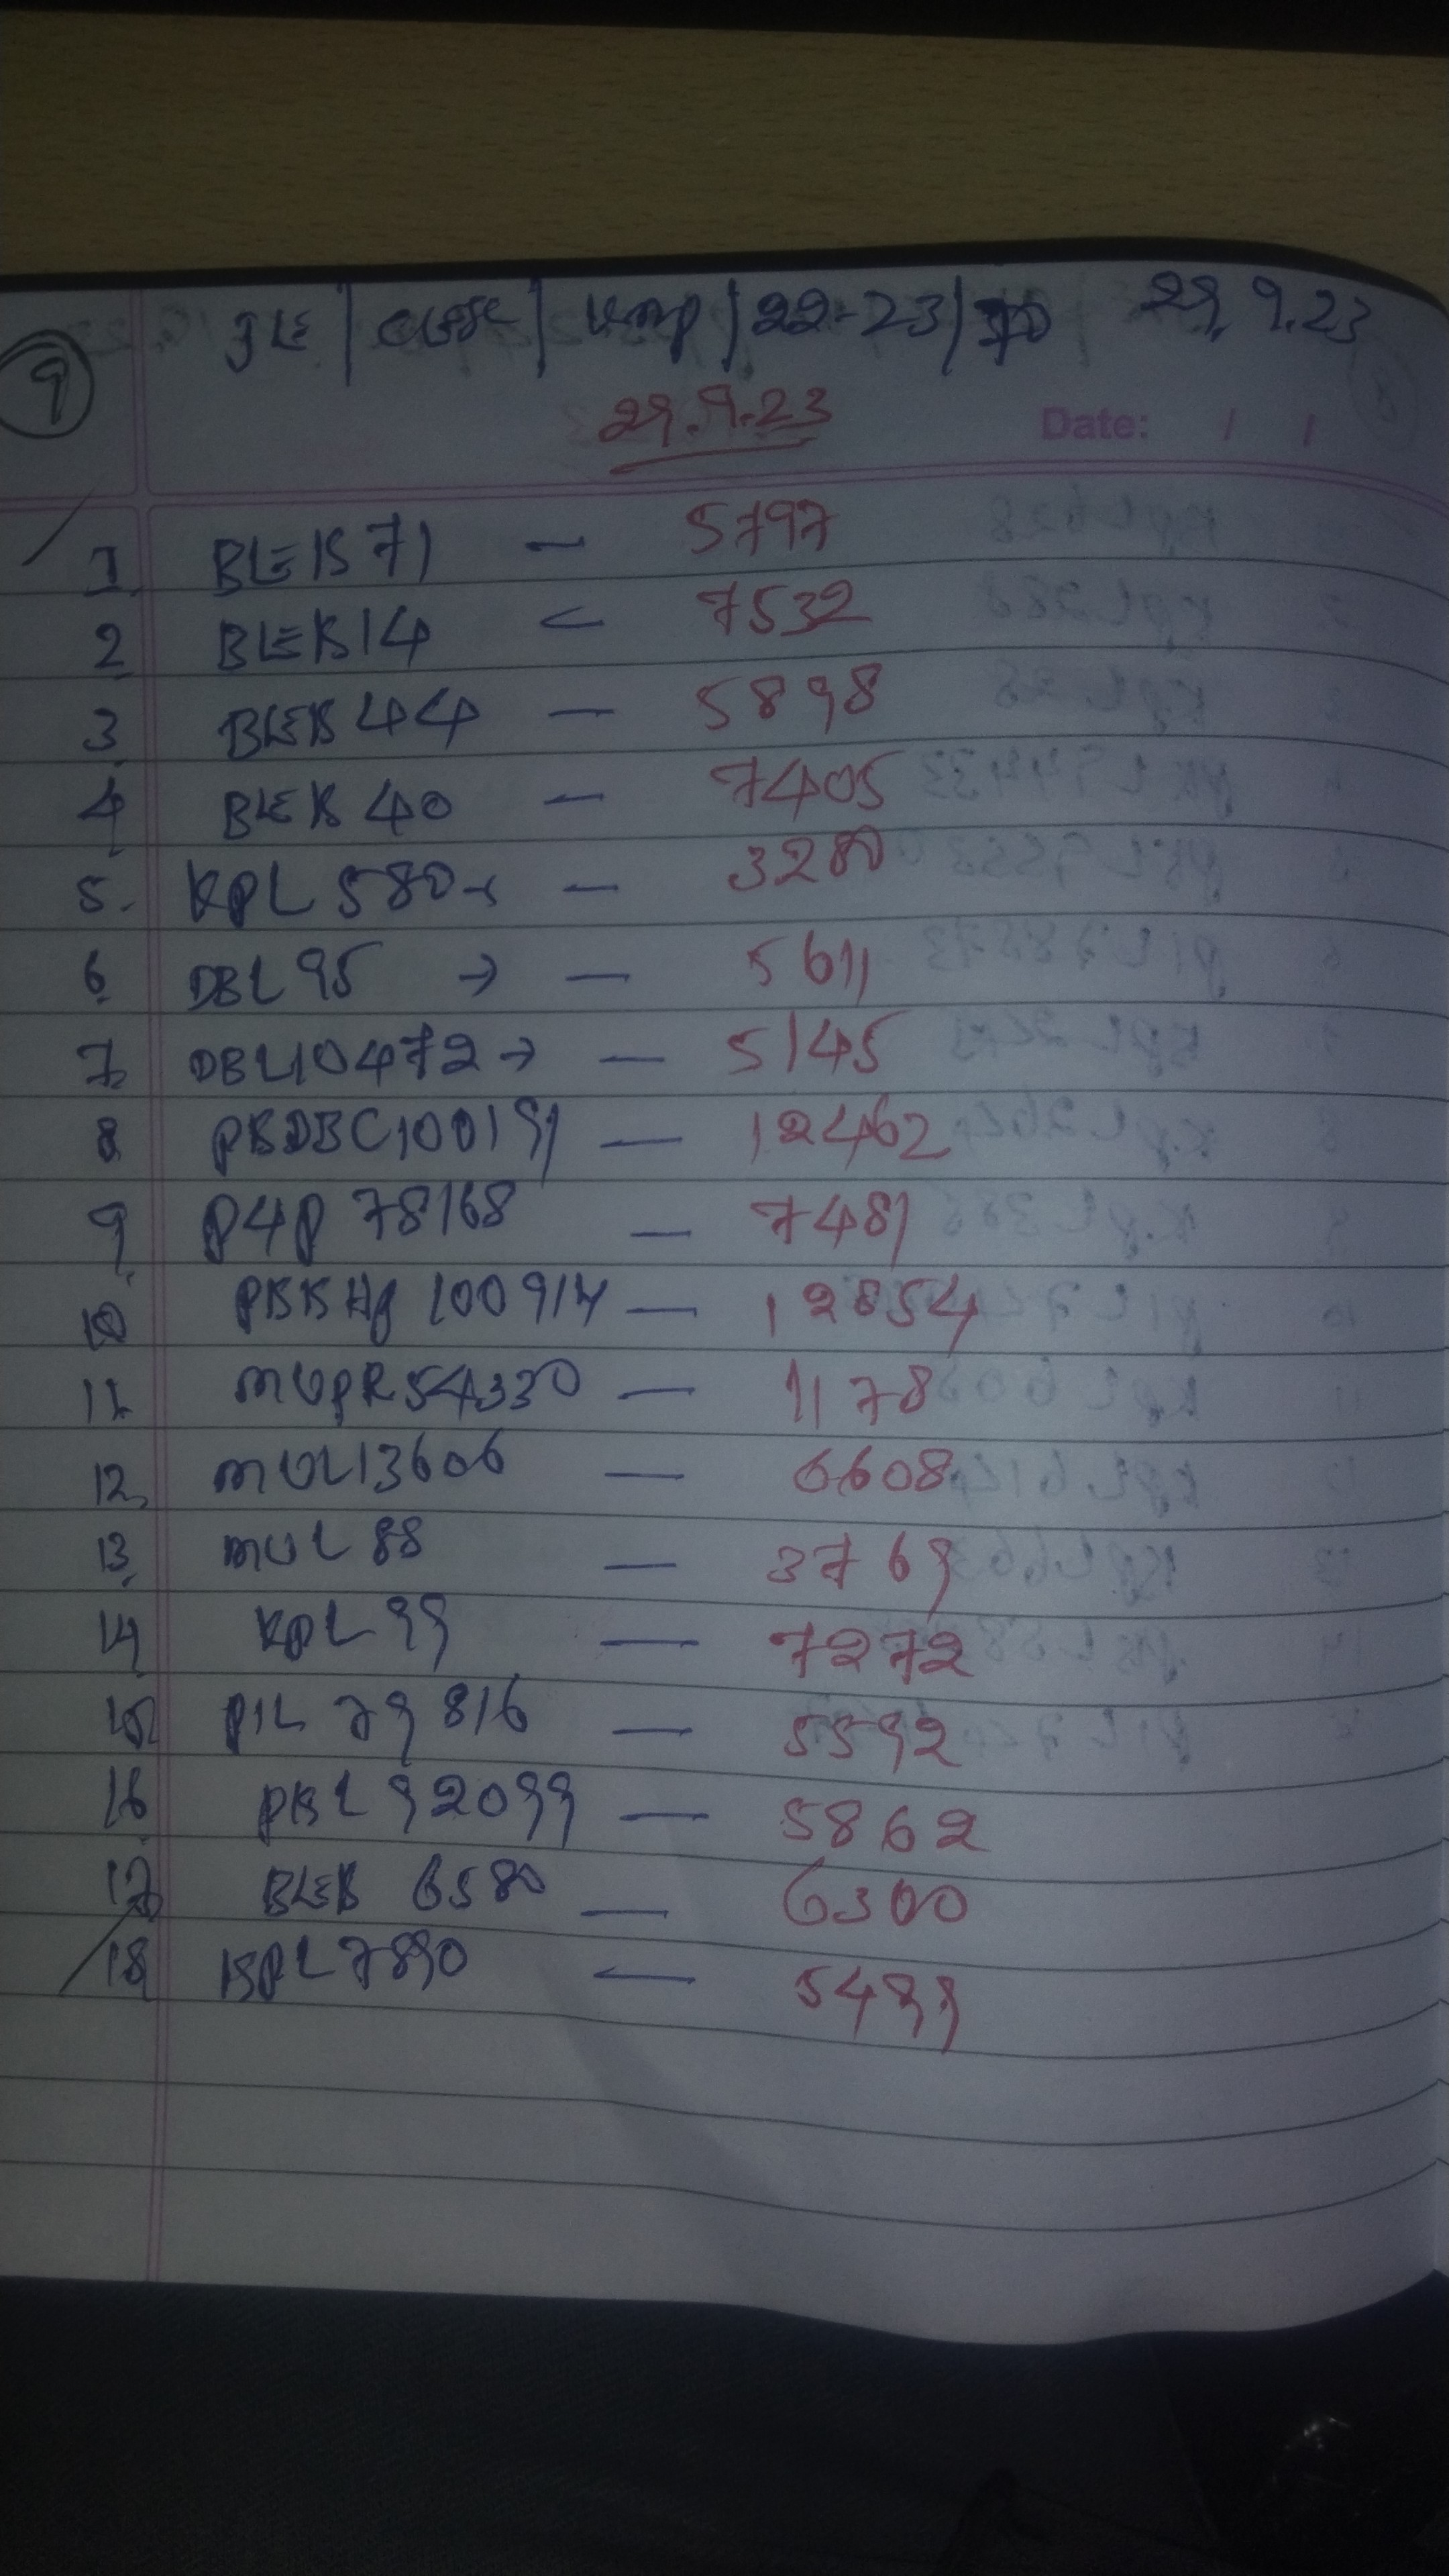 9
JLE | CLOSE | KMP | 22-23 | 70 29.9.23
29.9.23
Date: / /
1 BLEKB71 — 5797
2 BLEKB14 — 7532
3 BLEKB44 — 5898
4 BLEKB40 — 7405
5. KPL 580 — 3280
6 DBL 95 → — 5611
7 DBL10472 → — 5145
8 PBDBC100191 — 12462
9 P4P 78168 — 7481
10 100914 — 12854
11 54330 — 1178
12 MUL13606 — 6608
13 MUL 88 — 3769
14 KPL 99 — 7272
15 PIL 79816 — 5592
16 PBL 92099 — 5862
17 BLEKB 6580 — 6300
18 KPL 7890 — 5499